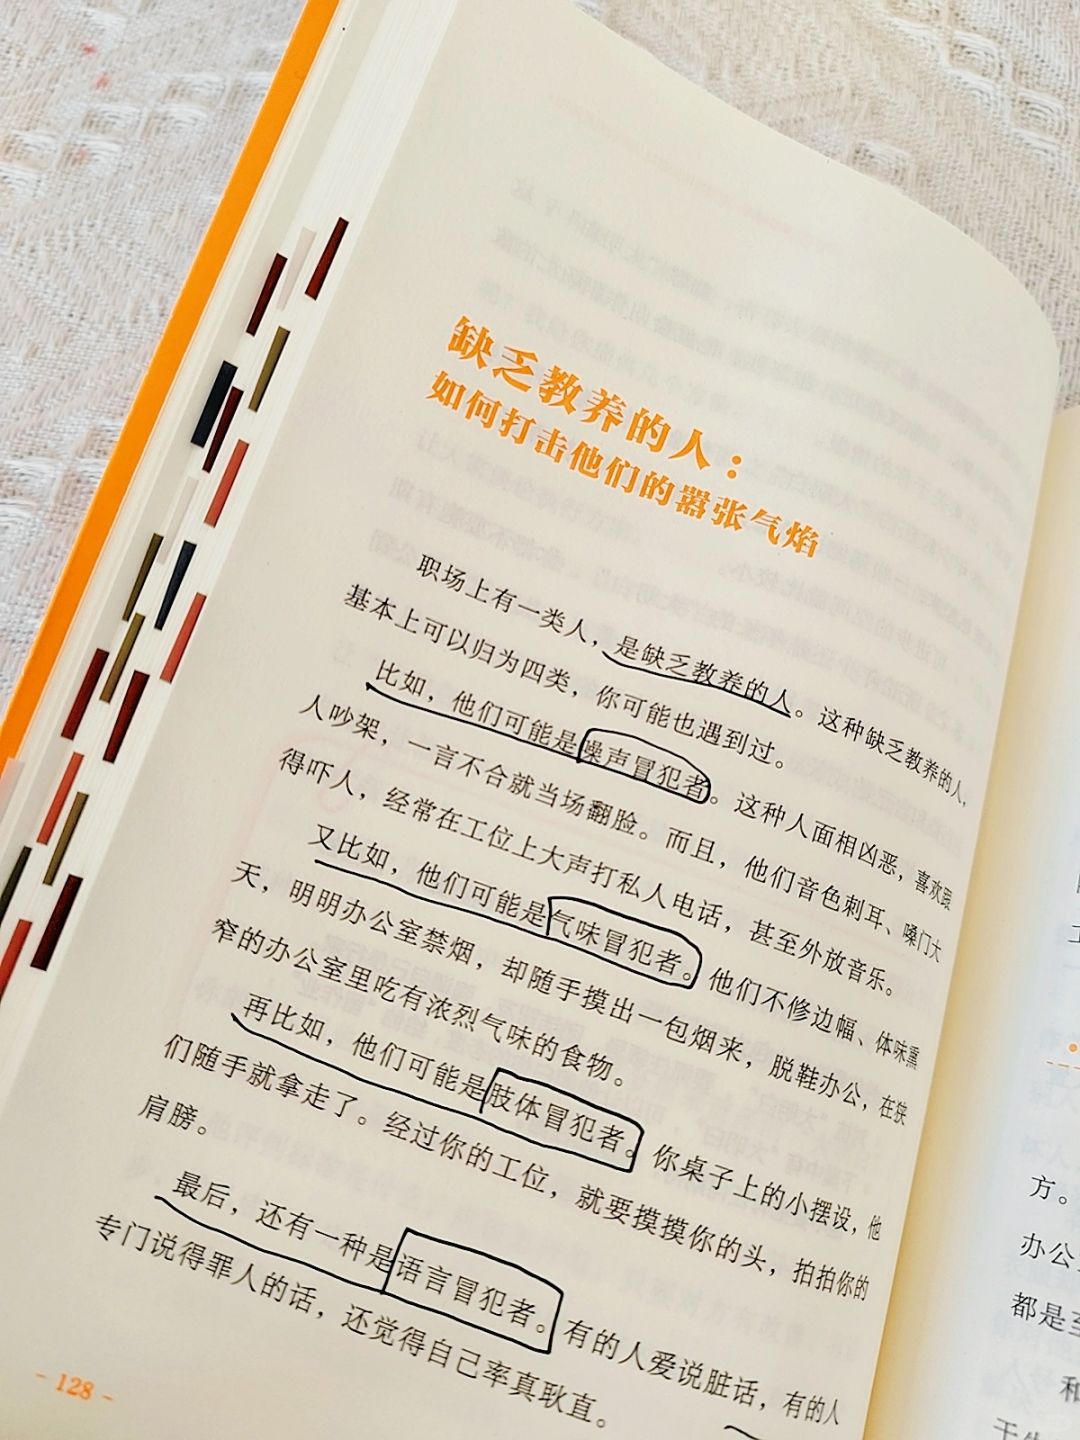 缺乏教养的人：
如何打击他们的嚣张气焰
职场上有一类人，是缺乏教养的人。这种缺乏教养的人，
基本上可以归为四类，你可能也遇到过。
比如，他们可能是噪声冒犯者。这种人面相凶恶，喜欢跟
人吵架，一言不合就当场翻脸。而且，他们音色刺耳、嗓门大
得吓人，经常在工位上大声打私人电话，甚至外放音乐。
又比如，他们可能是气味冒犯者。他们不修边幅、体味熏
天，明明办公室禁烟，却随手摸出一包烟来，脱鞋办公，在狭
窄的办公室里吃有浓烈气味的食物。
再比如，他们可能是肢体冒犯者。你桌子上的小摆设，他
们随手就拿走了。经过你的工位，就要摸摸你的头，拍拍你的
肩膀。
最后，还有一种是语言冒犯者。有的人爱说脏话，有的人
专门说得罪人的话，还觉得自己率真耿直。
- 128 -
方。
办公
都是至
和